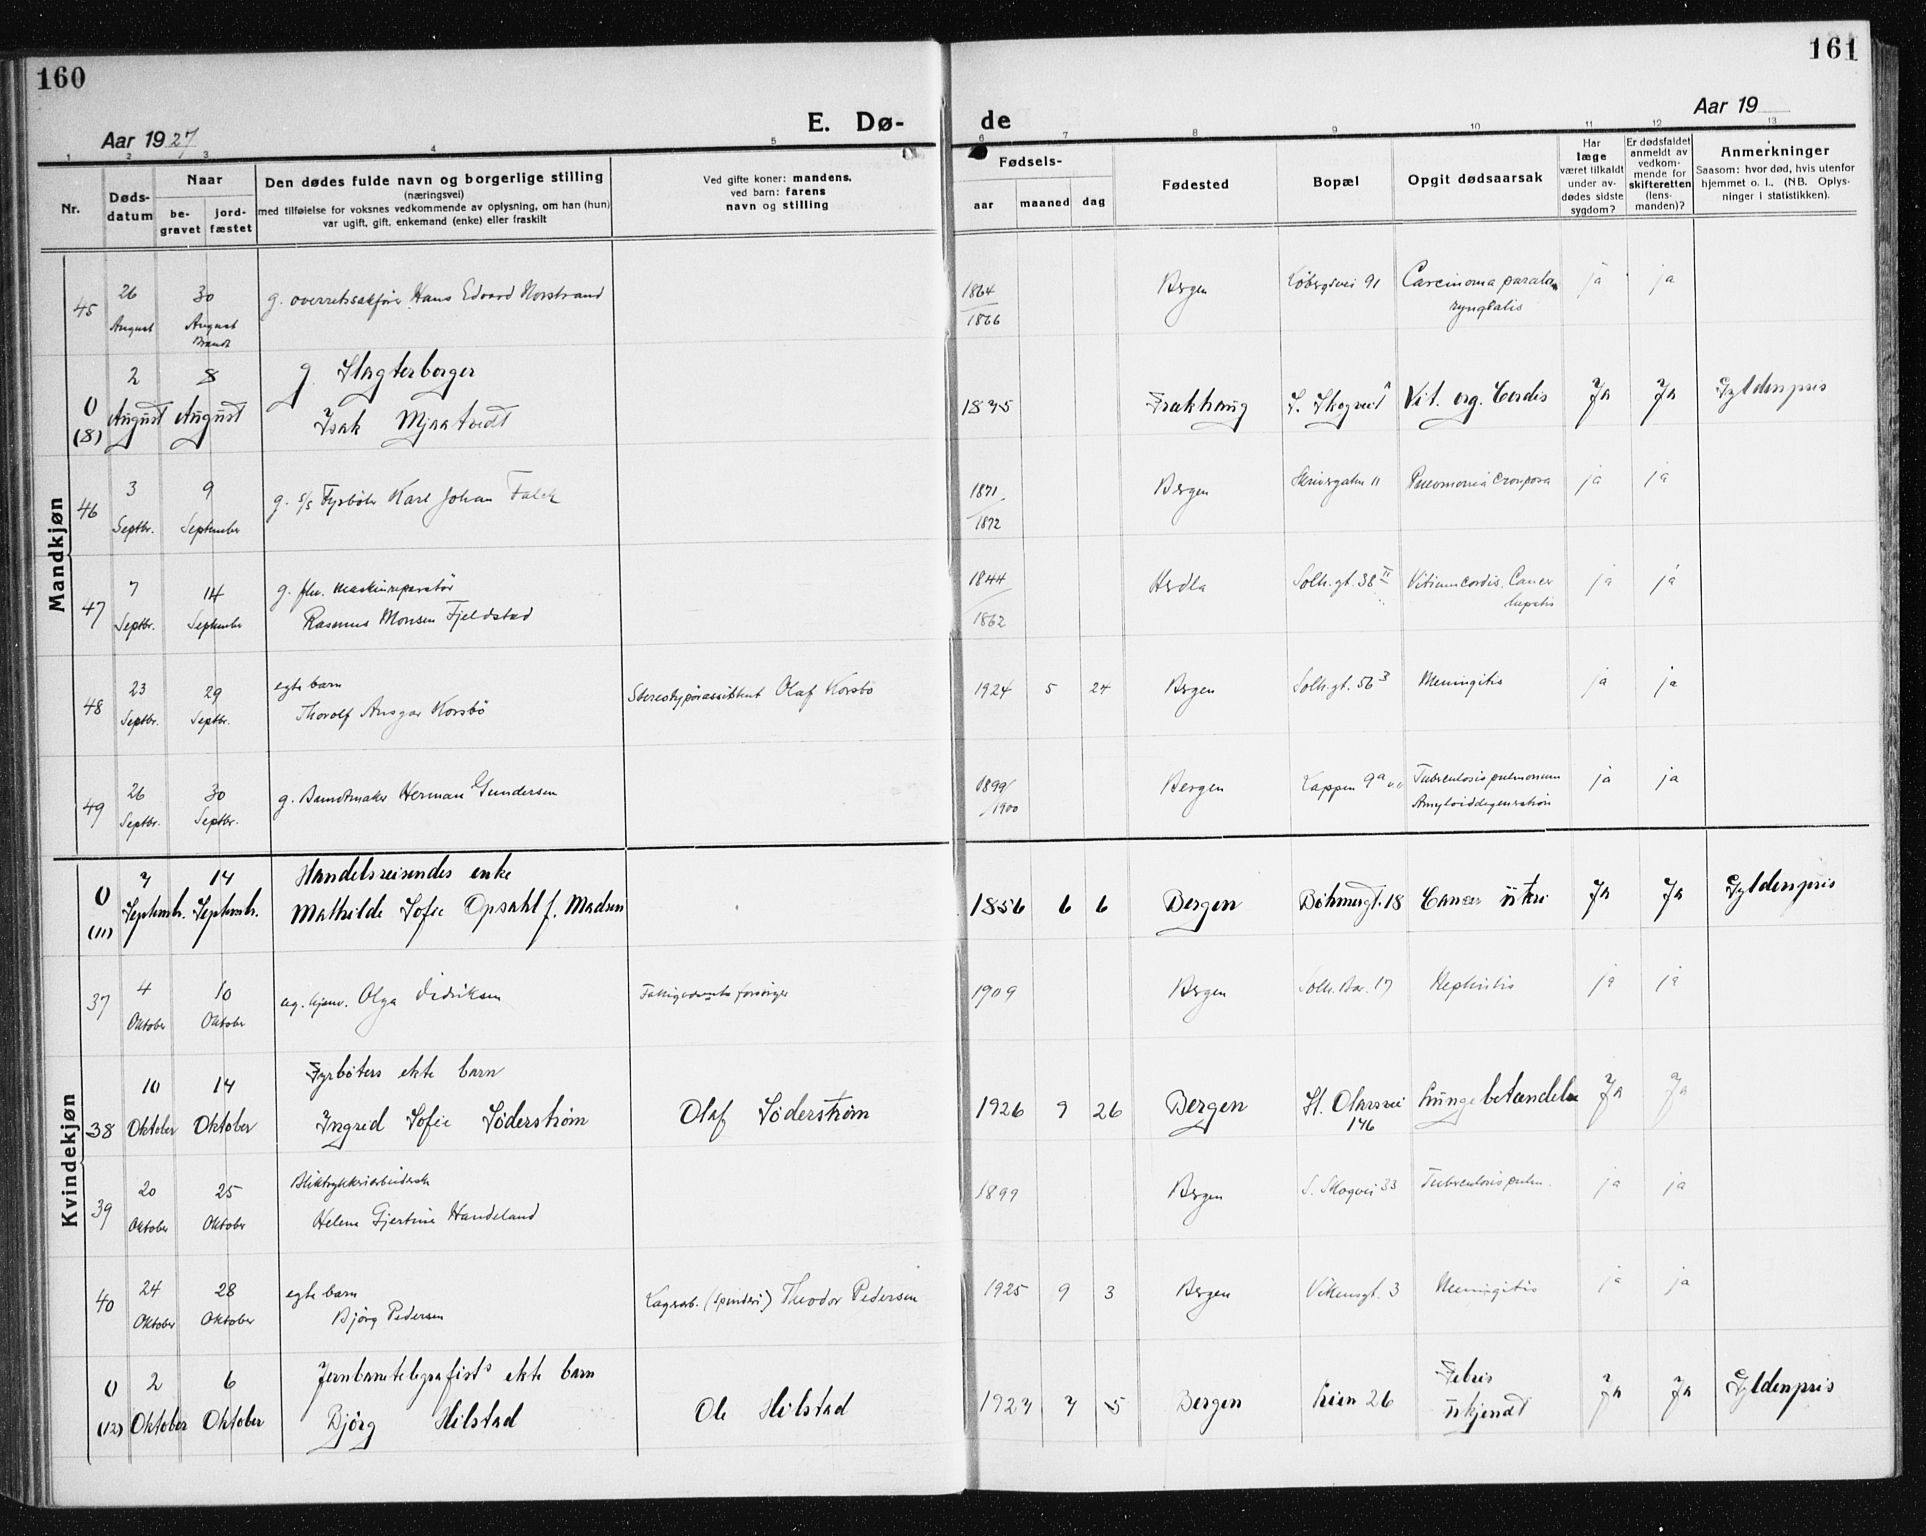 160
161
E. Dø-
de
Aar 1927
Aar 19
1 2 3 4 5 6 7 8 9 10 11 12 13
Nr.
Døds-
datum
Naar
be-
gravet
jord-
fæstet
Den dødes fulde navn og borgerlige stilling
(næringsvei)
med tilføielse for voksnes vedkommende av oplysning, om han (hun)
var ugift, gift, enkemand (enke) eller fraskilt
Ved gifte koner: mandens,
ved barn: farens
navn og stilling
Fødsels-
aar maaned dag
Fødested
Bopæl
Opgit dødsaarsak
Har
læge
været tilkaldt
under av-
dødes sidste
sygdom?
Er dødsfaldet
anmeldt av
vedkom-
mende for
skifteretten
(lens-
manden)?
Anmerkninger
Saasom: hvor død, hvis utenfor
hjemmet o. l., (NB. Oplys-
ninger i statistikken).
Mandkjøn
45 26 August 30 August Brandt g. overretssakfører Hans Edvard Norstrand 1864/1866 Bergen 91 Carcinoma ja ja
0 (8) 2 August 8 August g. Slagterborger
Isak Mjaatvedt 1835 Frakhaug S. Skogvei Vit. org. Cordis Ja Ja Gyldenpris
46 3 Septbr. 9 September g. s/s Fyrbøter Karl Johan Falck 1871/1872 Bergen 11 Pneumonia crouposa ja ja
47 7 Septbr. 14 September g. fhv. maskinreparatør
Rasmus Monsen Fjeldstad 1844/1862 Herdla Solh.gt. 38 II Vitium cordis. Cancer
hepatis ja ja
48 23 Septbr. 29 Septbr. egte barn
Thorolf Ansgar Korsbø Stereotypørassistent Olaf Korsbø 1924 5 24 Bergen Solh.gt. 56 3 Meningitis ja ja
49 26 Septbr. 30 Septbr. g. Buntmaker Herman Gundersen 1899/1900 Bergen Kappen 9a Tuberculosis pulmonum
Amyloiddegeneration ja ja
Kvindekjøn
0 (11) 7 Septembr. 14 Septembr. Handelsreisendes enke
Mathilde Sofie Opsahl f. Madsen 1856 6 6 Bergen Böhmergt. 18 Cancer uteri Ja Ja Gyldenpris
37 4 Oktober 10 Oktober ug. hjemv. Olga Didriksen forsørger 1909 Bergen Solh. 17 Nephritis ja ja
38 10 Oktober 14 Oktober Fyrbøters ekte barn
Ingred Sofie Söderstrøm Olaf Söderstrøm 1926 9 26 Bergen St. Olavsvei
146 Lungebetændelse Ja Ja
39 20 Oktober 25 Oktober Bliktrykkeriarbeiderske
Helene Gjertine Handeland 1899 Bergen S. Skogvei 33 Tuberculosis pulm. ja ja
40 24 Oktober 28 Oktober egte barn
Bjørg Pedersen Lagerarb. (spinderi) Theodor Pedersen 1925 9 3 Bergen Vikensgt. 3 Meningitis ja ja
0 (12) 2 Oktober 6 Oktober Jernbanetelegrafists ekte barn
Björg Hilstad Ole Hilstad 1927 7 5 Bergen Lien 26 Febris
ukjendt Ja Ja Gyldenpris